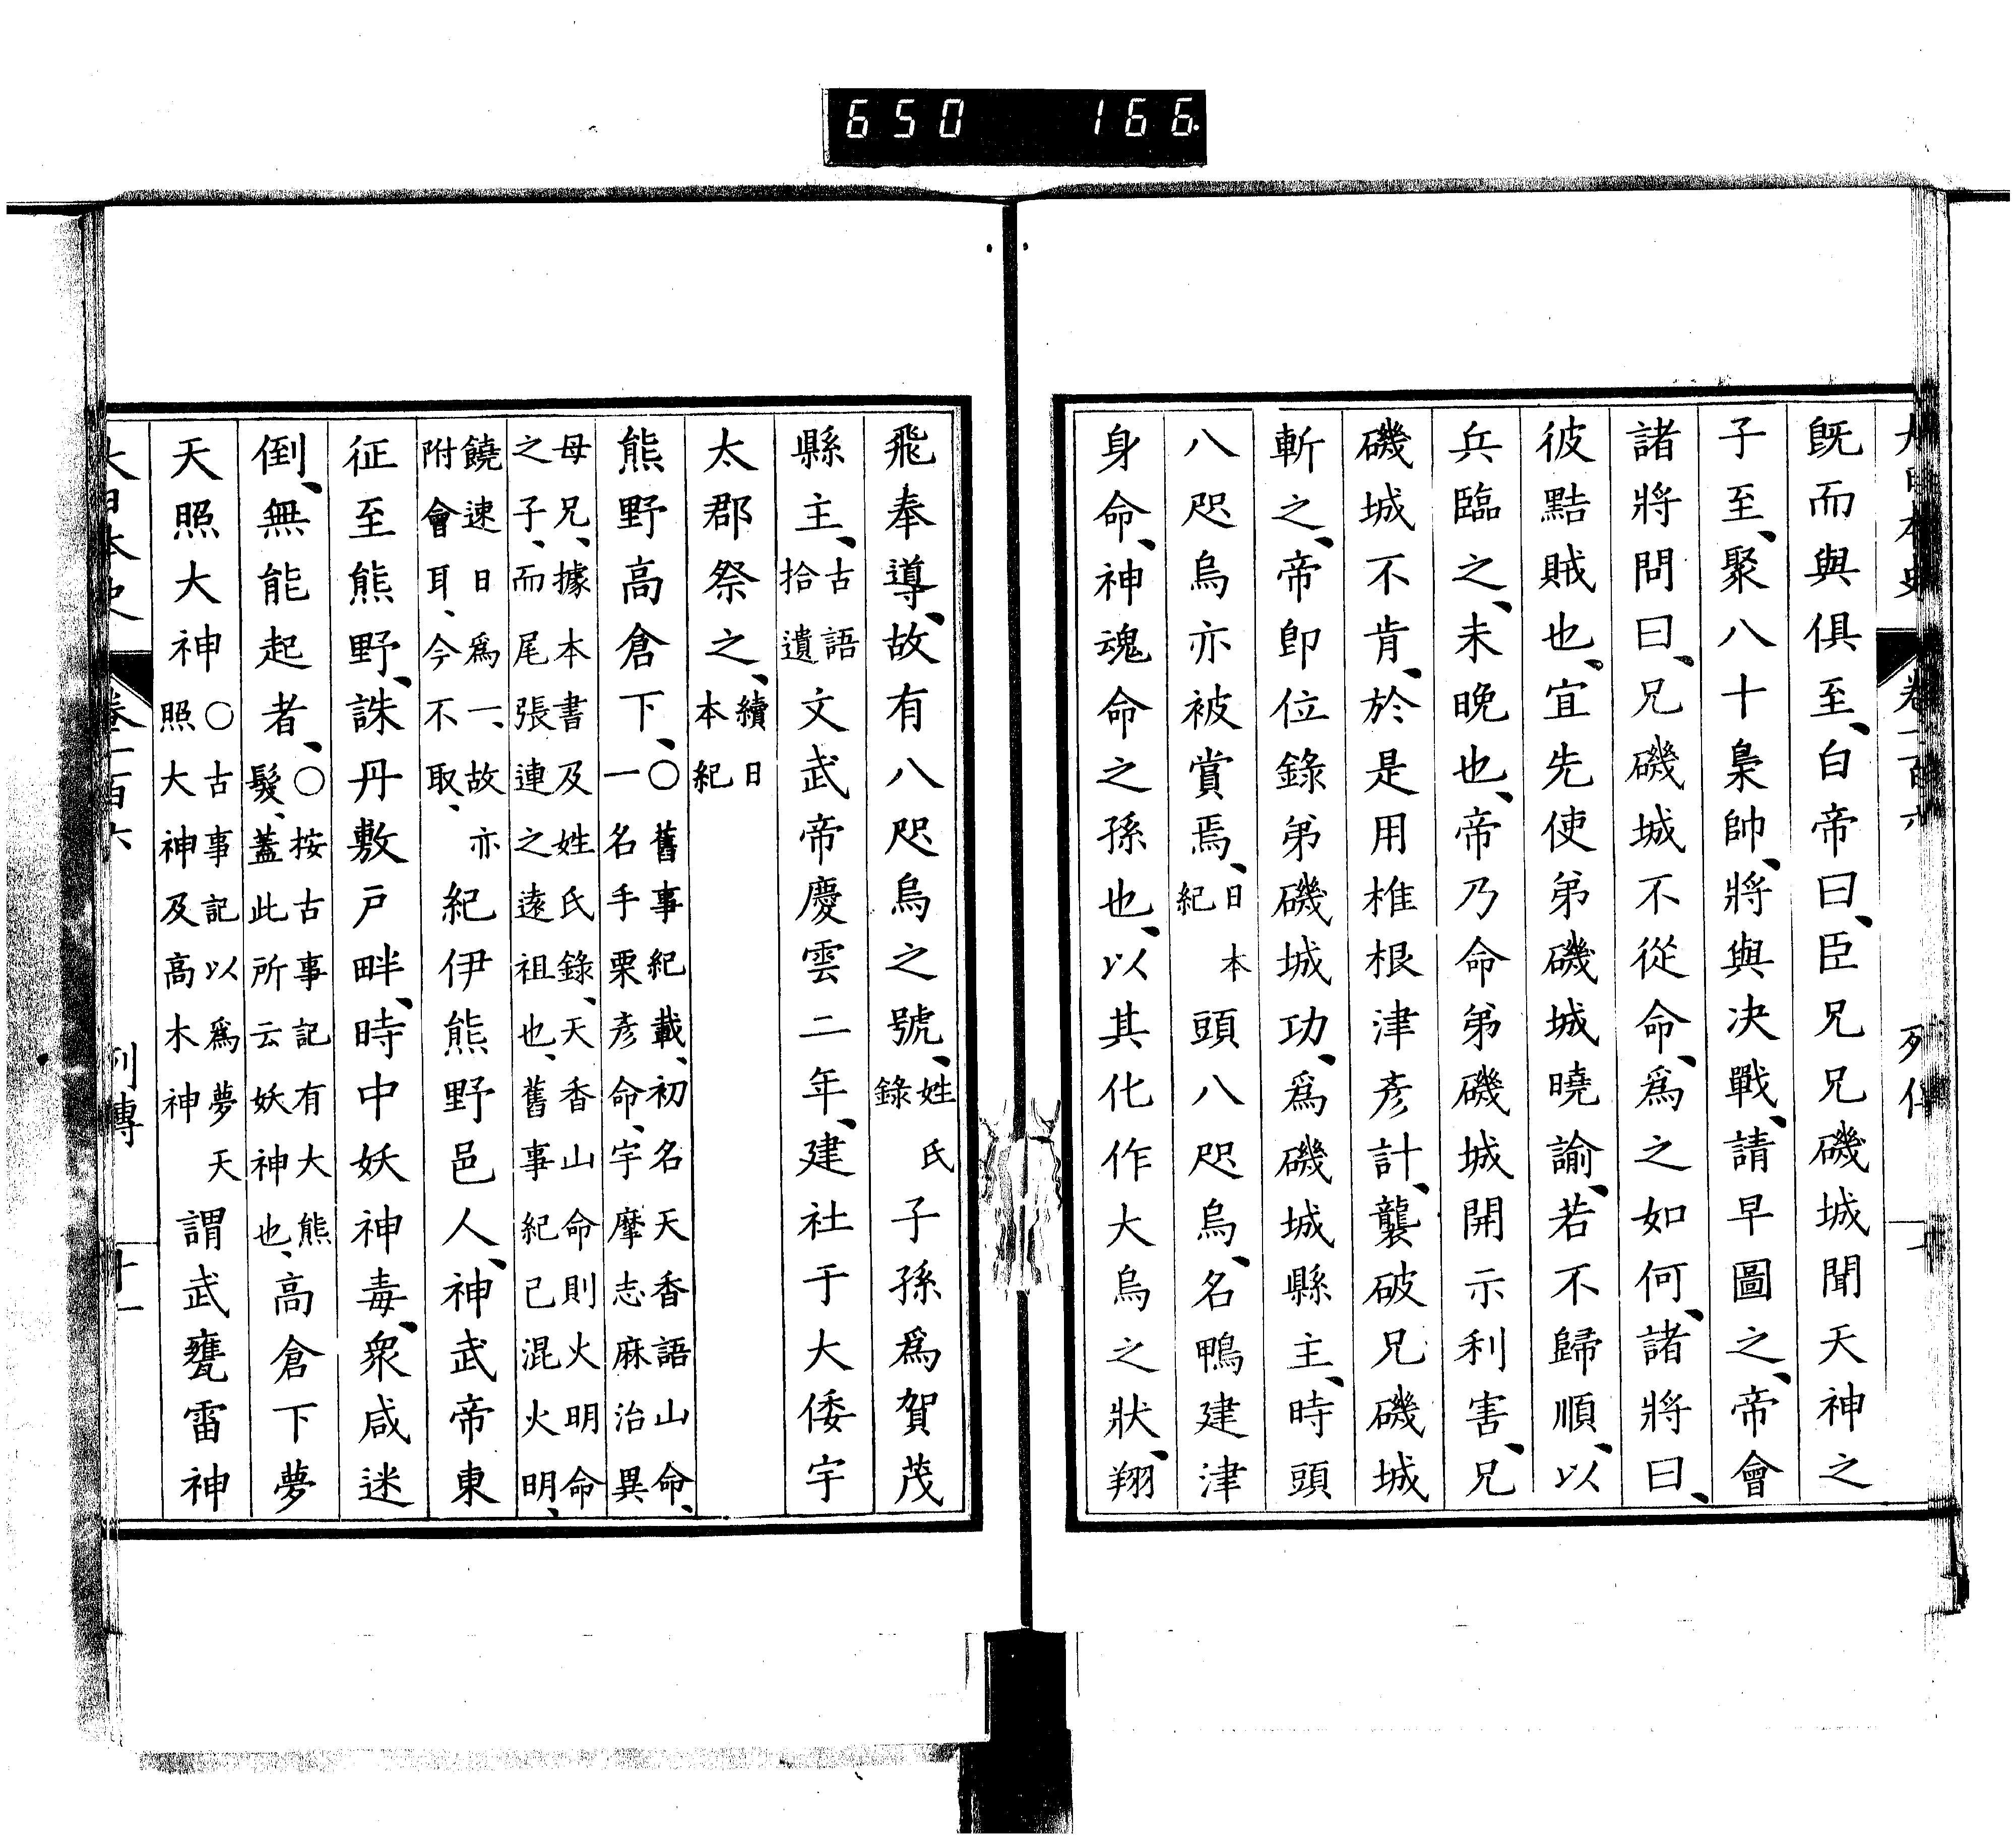 650 166
大日本史 卷一百六 列傳
旣而與俱至、白帝曰、臣兄兄磯城聞天神之
子至、聚八十梟帥、將與決戰、請早圖之、帝會
諸將問曰、兄磯城不從命、爲之如何、諸將曰、
彼黠賊也、宜先使弟磯城曉諭、若不歸順、以
兵臨之、未晩也、帝乃命弟磯城開示利害、兄
磯城不肯、於是用椎根津彥計、襲破兄磯城
斬之、帝卽位錄弟磯城功、爲磯城縣主、時頭
八咫烏亦被賞焉、日本紀頭八咫烏、名鴨建津
身命、神魂命之孫也、以其化作大烏之狀、翔
飛奉導、故有八咫烏之號、姓氏錄子孫爲賀茂
縣主、古語拾遺文武帝慶雲二年、建社于大倭宇
太郡祭之、續日本紀
熊野高倉下、〇舊事紀載、初名天香語山命、一名手栗彥命、宇摩志麻治異
母兄、據本書及姓氏錄、天香山命則火明命之子、而尾張連之遠祖也、舊事紀已混火明、
饒速日爲一、故亦附會耳、今不取、紀伊熊野邑人、神武帝東
征至熊野、誅丹敷戸畔、時中妖神毒、衆咸迷
倒、無能起者、〇按古事記有大熊髮、蓋此所云妖神也、高倉下夢
天照大神〇古事記以爲夢天照大神及高木神謂武甕雷神
大日本史 卷一百六 列傳 十一